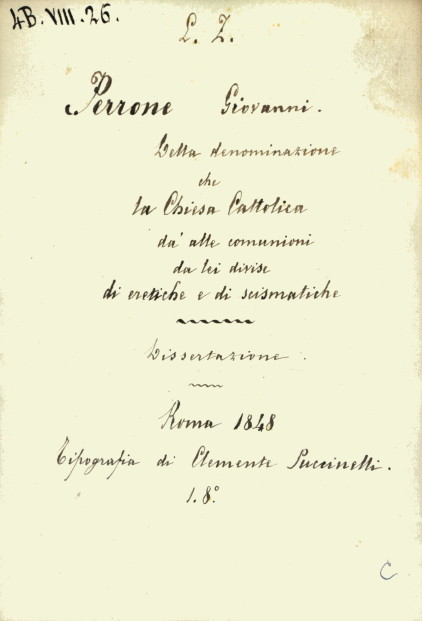 4B. VIII. 26.
L. Z.
Perrone Giovanni.
Della denominazione
che
la Chiesa Cattolica
dà alle comunioni
da lei divise
di eretiche e di scismatiche
Dissertazione.
Roma 1848
Tipografia di Clemente Puccinelli.
1. 8°
C